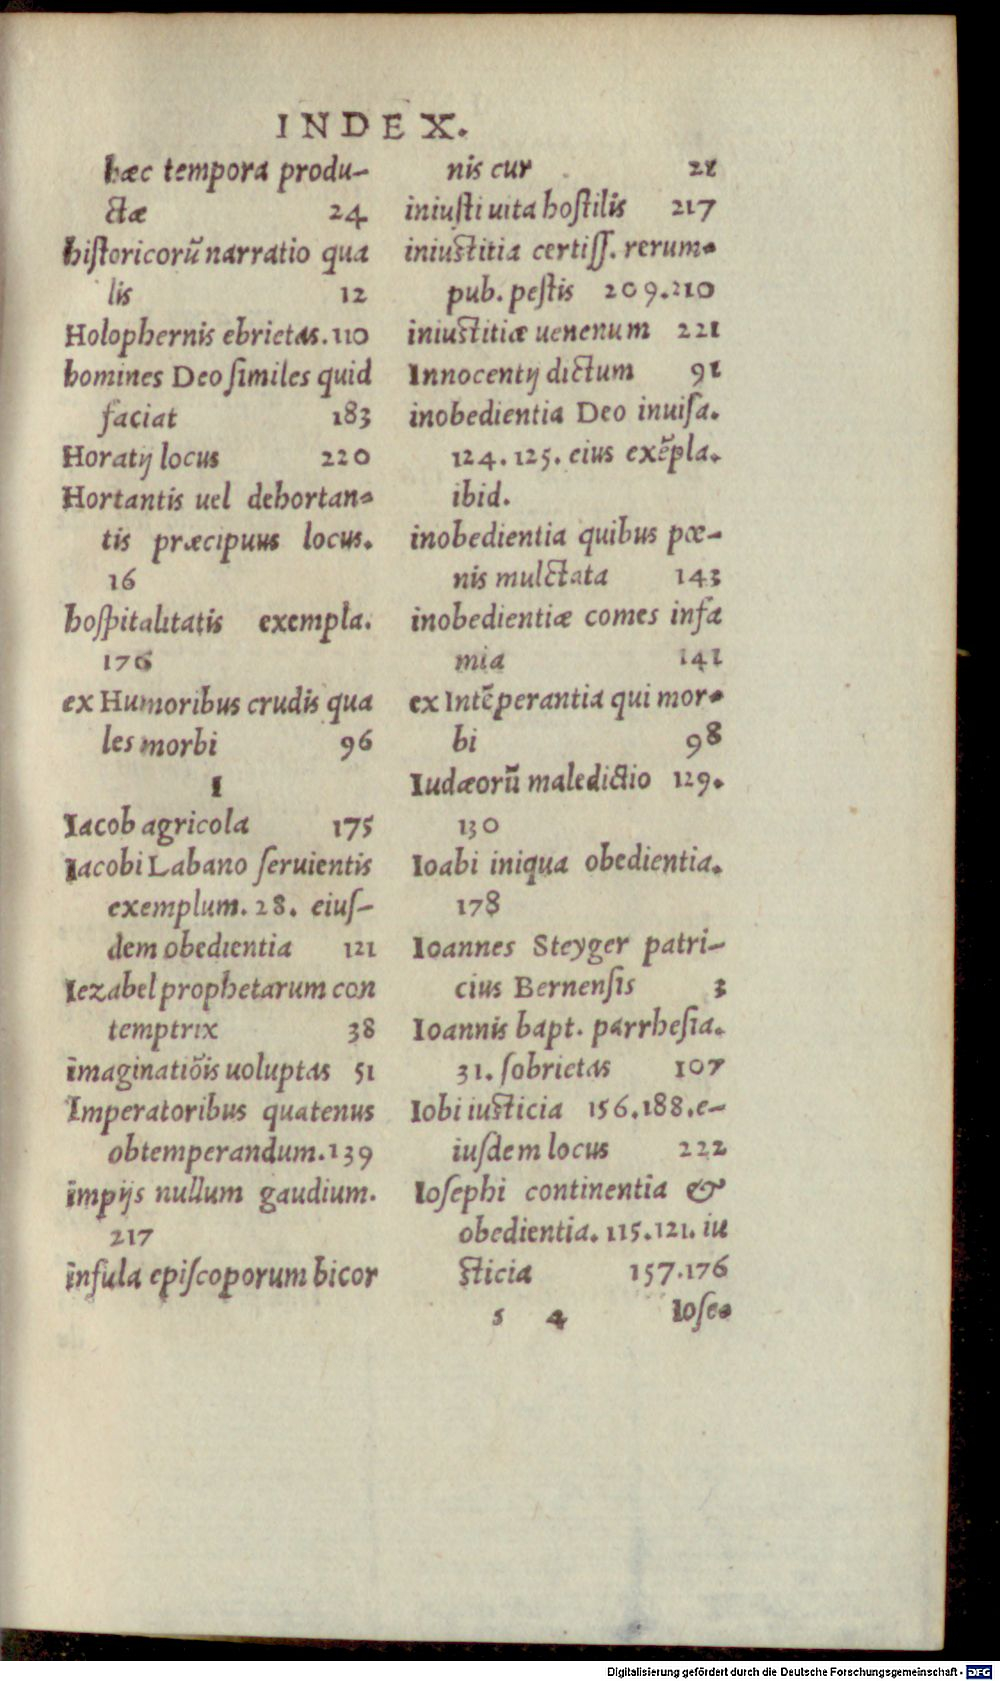 INDEX.
hæc tempora produ-
ctæ 24
historicorũ narratio qua
lis 12
Holophernis ebrietas. 110
homines Deo similes quid
faciat 183
Horatij locus 220
Hortantis uel dehortan-
tis præcipuus locus.
16
hospitalitatis exempla.
176
ex Humoribus crudis qua
les morbi 96
I
Iacob agricola 175
Iacobi Labano seruientis
exemplum. 28. eius-
dem obedientia 121
Iezabel prophetarum con
temptrix 38
imaginatiõis uoluptas 51
Imperatoribus quatenus
obtemperandum. 139
impijs nullum gaudium.
217
insula episcoporum bicor
nis cur 21
iniusti uita hostilis 217
iniustitia certiss. rerum-
pub. pestis 209.210
iniustitiæ uenenum 221
Innocentij dictum 91
inobedientia Deo inuisa.
124. 125. eius exẽpla.
ibid.
inobedientia quibus pœ-
nis mulctata 143
inobedientiæ comes infa
mia 141
ex Intẽperantia qui mor-
bi 98
Iudæorũ maledictio 129.
130
Ioabi iniqua obedientia.
178
Ioannes Steyger patri-
cius Bernensis 3
Ioannis bapt. parrhesia.
31. sobrietas 107
Iobi iusticia 156.188.e-
iusdem locus 222
Iosephi continentia &
obedientia. 115.121. iu
sticia 157.176
s 4 Iose-
Digitalisierung gefördert durch die Deutsche Forschungsgemeinschaft - DFG